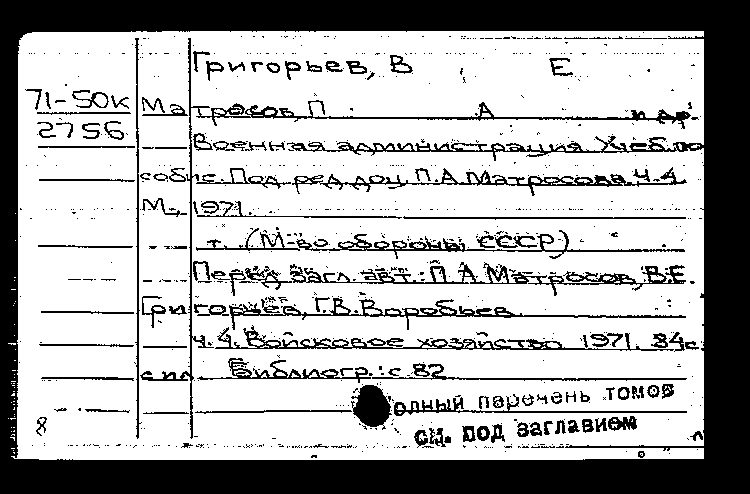 Григорьев, В Е
71-50к
2756
Матросов, П А и др.
Военная администрация Учеб. по
собие. Под ред. доц. П.А. Матросова. Ч. 4.
М., 1971.
т. (М-во обороны СССР)
Перед загл. авт.: П. А. Матросов, В.Е.
Григорьев, Г.В. Воробьев.
Ч. 4. Войсковое хозяйство 1971. 84с.
с ил. Библиогр.: с 82
олный перечень томов
см. под заглавием
8